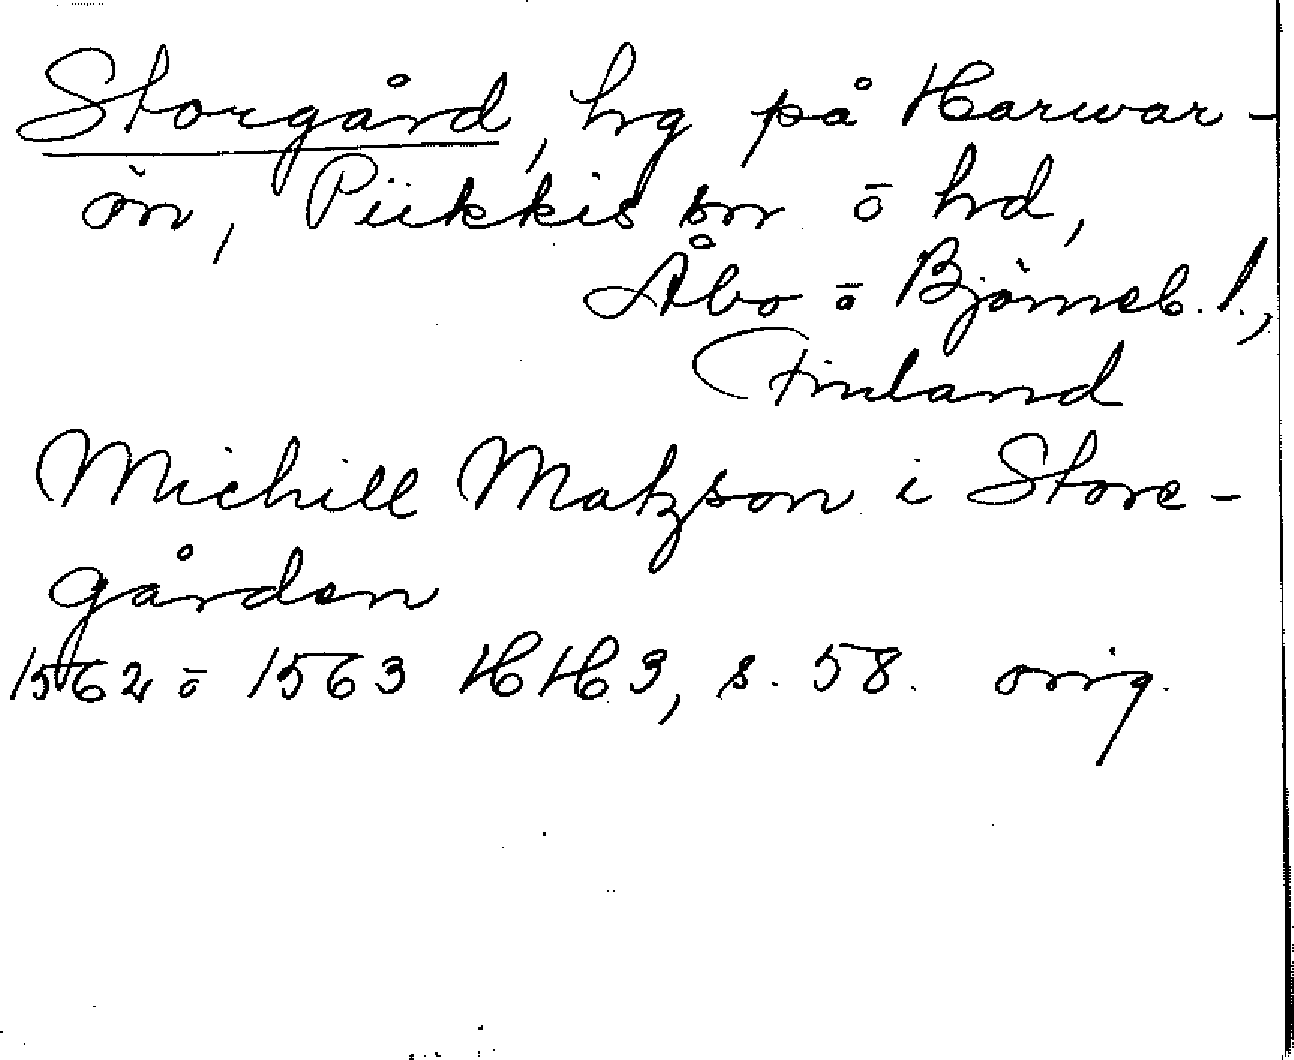 Storgård, hg på Harwar-
ön, Piikkis sn ō hd,
Åbo ō Björneb. l.,
Finland
Michill Matzson i Store-
gården
1562 ō 1563 HH 3, s. 58. orig.